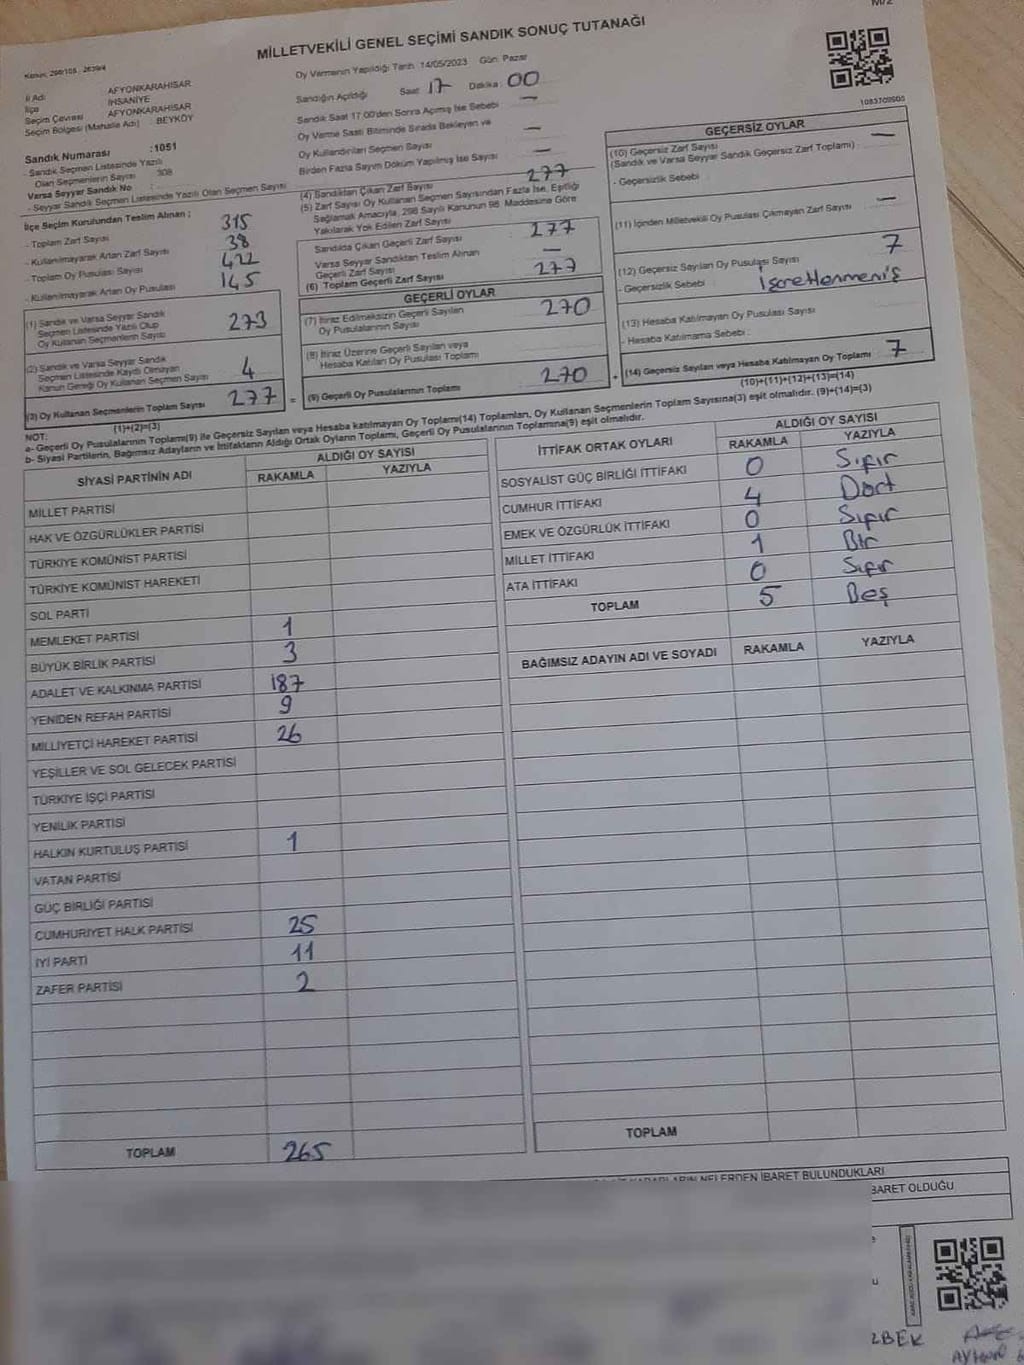 MİLLETVEKİLİ GENEL SEÇİMİ SANDIK SONUÇ TUTANAĞI
Oy Vermenin Yapıldığı Tarih :14/05/2023 Gün: Pazar
İl Adı : AFYONKARAHİSAR
İlçe : İHSANİYE
Seçim Çevresi : AFYONKARAHİSAR
Seçim Bölgesi (Mahalle Adı) : BEYKÖY
Sandık Numarası :1051
- Sandık Seçmen Listesinde Yazılı
Olan Seçmenlerin Sayısı 308
Varsa Seyyar Sandık No :
- Seyyar Sandık Seçmen Listesinde Yazılı Olan Seçmen Sayısı
İlçe Seçim Kurulundan Teslim Alınan ;
- Toplam Zarf Sayısı 315
- Kullanılmayarak Artan Zarf Sayısı 38
- Toplam Oy Pusulası Sayısı 422
- Kullanılmayarak Artan Oy Pusulası 145
(1) Sandık ve Varsa Seyyar Sandık
Seçmen Listesinde Yazılı Olup
Oy Kullanan Seçmenlerin Sayısı 273
(2) Sandık ve Varsa Seyyar Sandık
Seçmen Listesinde Kaydı Olmayan
Kanun Gereği Oy Kullanan Seçmen Sayısı 4
(3) Oy Kullanan Seçmenlerin Toplam Sayısı 277 =
(1)+(2)=(3)
Sandığın Açıldığı Saat 17 Dakika 00
Sandık Saat 17.00'den Sonra Açılmış İse Sebebi —
Oy Verme Saati Bitiminde Sırada Bekleyen ve
Oy Kullandırılan Seçmen Sayısı —
Birden Fazla Sayım Döküm Yapılmış İse Sayısı —
(4) Sandıktan Çıkan Zarf Sayısı 277
(5) Zarf Sayısı Oy Kullanan Seçmen Sayısından Fazla İse, Eşitliği
Sağlamak Amacıyla, 298 Sayılı Kanunun 98. Maddesine Göre
Yakılarak Yok Edilen Zarf Sayısı
Sandıkda Çıkan Geçerli Zarf Sayısı 277
Varsa Seyyar Sandıktan Teslim Alınan
Geçerli Zarf Sayısı —
(6) Toplam Geçerli Zarf Sayısı 277
GEÇERLİ OYLAR
(7) İtiraz Edilmeksizin Geçerli Sayılan
Oy Pusulalarının Sayısı 270
(8) İtiraz Üzerine Geçerli Sayılan veya
Hesaba Katılan Oy Pusulası Toplamı
(9) Geçerli Oy Pusulalarının Toplamı 270 +
GEÇERSİZ OYLAR
(10) Geçersiz Zarf Sayısı —
(Sandık ve Varsa Seyyar Sandık Geçersiz Zarf Toplamı) :
- Geçersizlik Sebebi :
(11) İçinden Milletvekili Oy Pusulası Çıkmayan Zarf Sayısı —
(12) Geçersiz Sayılan Oy Pusulası Sayısı 7
- Geçersizlik Sebebi : İşaretlenmemiş
(13) Hesaba Katılmayan Oy Pusulası Sayısı
- Hesaba Katılmama Sebebi :
(14) Geçersiz Sayılan veya Hesaba Katılmayan Oy Toplamı 7
(10)+(11)+(12)+(13)=(14)
NOT:
a- Geçerli Oy Pusulalarının Toplamı(9) ile Geçersiz Sayılan veya Hesaba katılmayan Oy Toplamı(14) Toplamları, Oy Kullanan Seçmenlerin Toplam Sayısına(3) eşit olmalıdır. (9)+(14)=(3)
b- Siyasi Partilerin, Bağımsız Adayların ve İttifakların Aldığı Ortak Oyların Toplamı, Geçerli Oy Pusulalarının Toplamına(9) eşit olmalıdır.
SİYASİ PARTİNİN ADI
ALDIĞI OY SAYISI
RAKAMLA YAZIYLA
MİLLET PARTİSİ
HAK VE ÖZGÜRLÜKLER PARTİSİ
TÜRKİYE KOMÜNİST PARTİSİ
TÜRKİYE KOMÜNİST HAREKETİ
SOL PARTİ
MEMLEKET PARTİSİ 1
BÜYÜK BİRLİK PARTİSİ 3
ADALET VE KALKINMA PARTİSİ 187
YENİDEN REFAH PARTİSİ 9
MİLLİYETÇİ HAREKET PARTİSİ 26
YEŞİLLER VE SOL GELECEK PARTİSİ
TÜRKİYE İŞÇİ PARTİSİ
YENİLİK PARTİSİ
HALKIN KURTULUŞ PARTİSİ 1
VATAN PARTİSİ
GÜÇ BİRLİĞİ PARTİSİ
CUMHURİYET HALK PARTİSİ 25
İYİ PARTİ 11
ZAFER PARTİSİ 2
TOPLAM 265
İTTİFAK ORTAK OYLARI
ALDIĞI OY SAYISI
RAKAMLA YAZIYLA
SOSYALİST GÜÇ BİRLİĞİ İTTİFAKI 0 Sıfır
CUMHUR İTTİFAKI 4 Dört
EMEK VE ÖZGÜRLÜK İTTİFAKI 0 Sıfır
MİLLET İTTİFAKI 1 Bir
ATA İTTİFAKI 0 Sıfır
TOPLAM 5 Beş
BAĞIMSIZ ADAYIN ADI VE SOYADI RAKAMLA YAZIYLA
TOPLAM
NELERDEN İBARET BULUNDUKLARI
BARET OLDUĞU
ZBEK